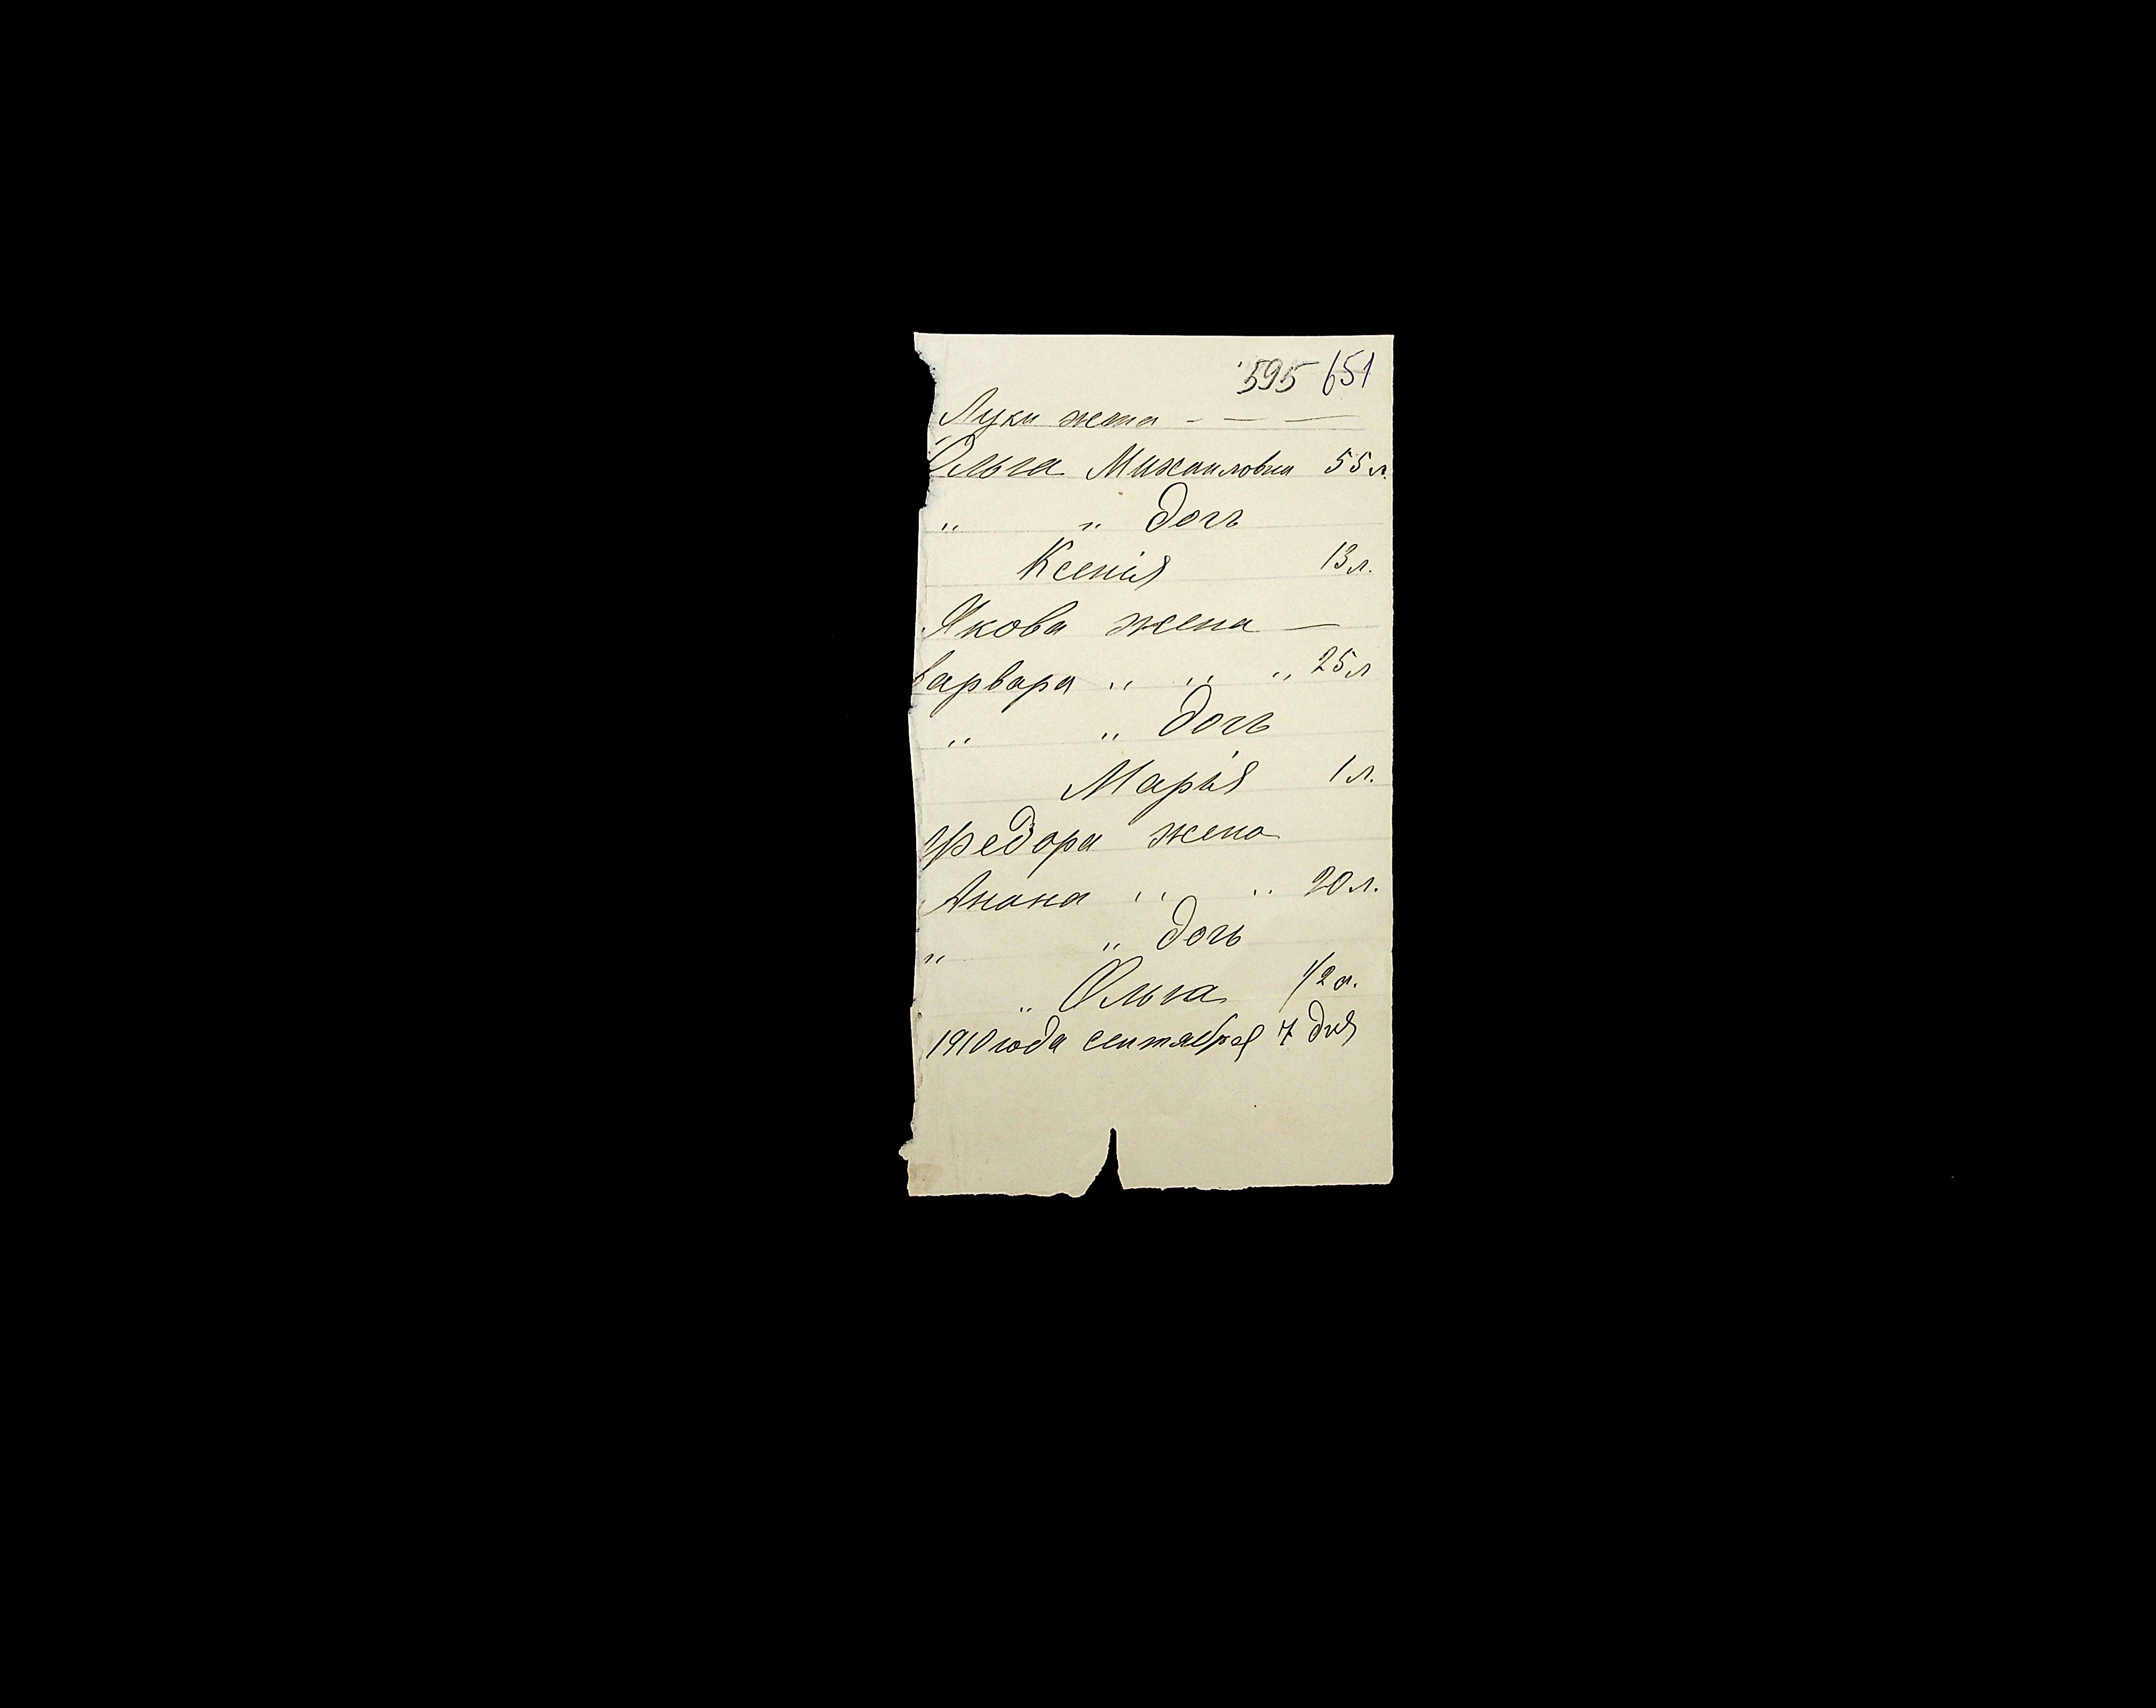 595 651
Луки жена - — —
Ольга Михаиловна 55 л.
„ „ дочь
Ксенія 13 л.
Якова жена —
Варвара „ „ „ 25 л
„ „ дочь
Марія 1 л.
Федора жена
Анона „ „ 20 л.
„ „ дочь
„ Ольга 1/2 г.
1910 года сентября 7 дня